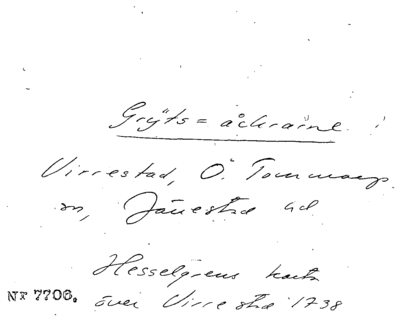 Grÿts = åckrarne
Virrestad, Ö. Tommarp
sn, Järrestad hd
Hesselgrens karta
över Virrestad 1738
Nr 7706.